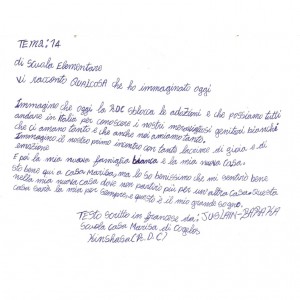 TEMA: 14
di Scuola Elementare
vi racconto QUALCOSA che ho immaginato oggi
Immagino che oggi la RDC sblocca le adozioni e che possiamo tutti
andare in Italia per conoscere i nostri meravigliosi genitori bianchi
che ci amano tanto e che anche noi amiamo tanto.
Immagino il nostro primo incontro con tante lacrime di gioia e di
emozione
E poi la mia nuova famiglia bianca e la mia nuova casa.
Sto bene qui a casa Marisa, ma lo so benissimo che mi sentirò bene
nella mia nuova casa dove non partirò più per un'altra casa. Questa
casa sarà la mia per sempre e questo è il mio grande sogno.
Testo scritto in francese da: JOSLAIN-BARAKA
Scuola Casa Marisa di Cogles
Kinshasa (R.D.C)